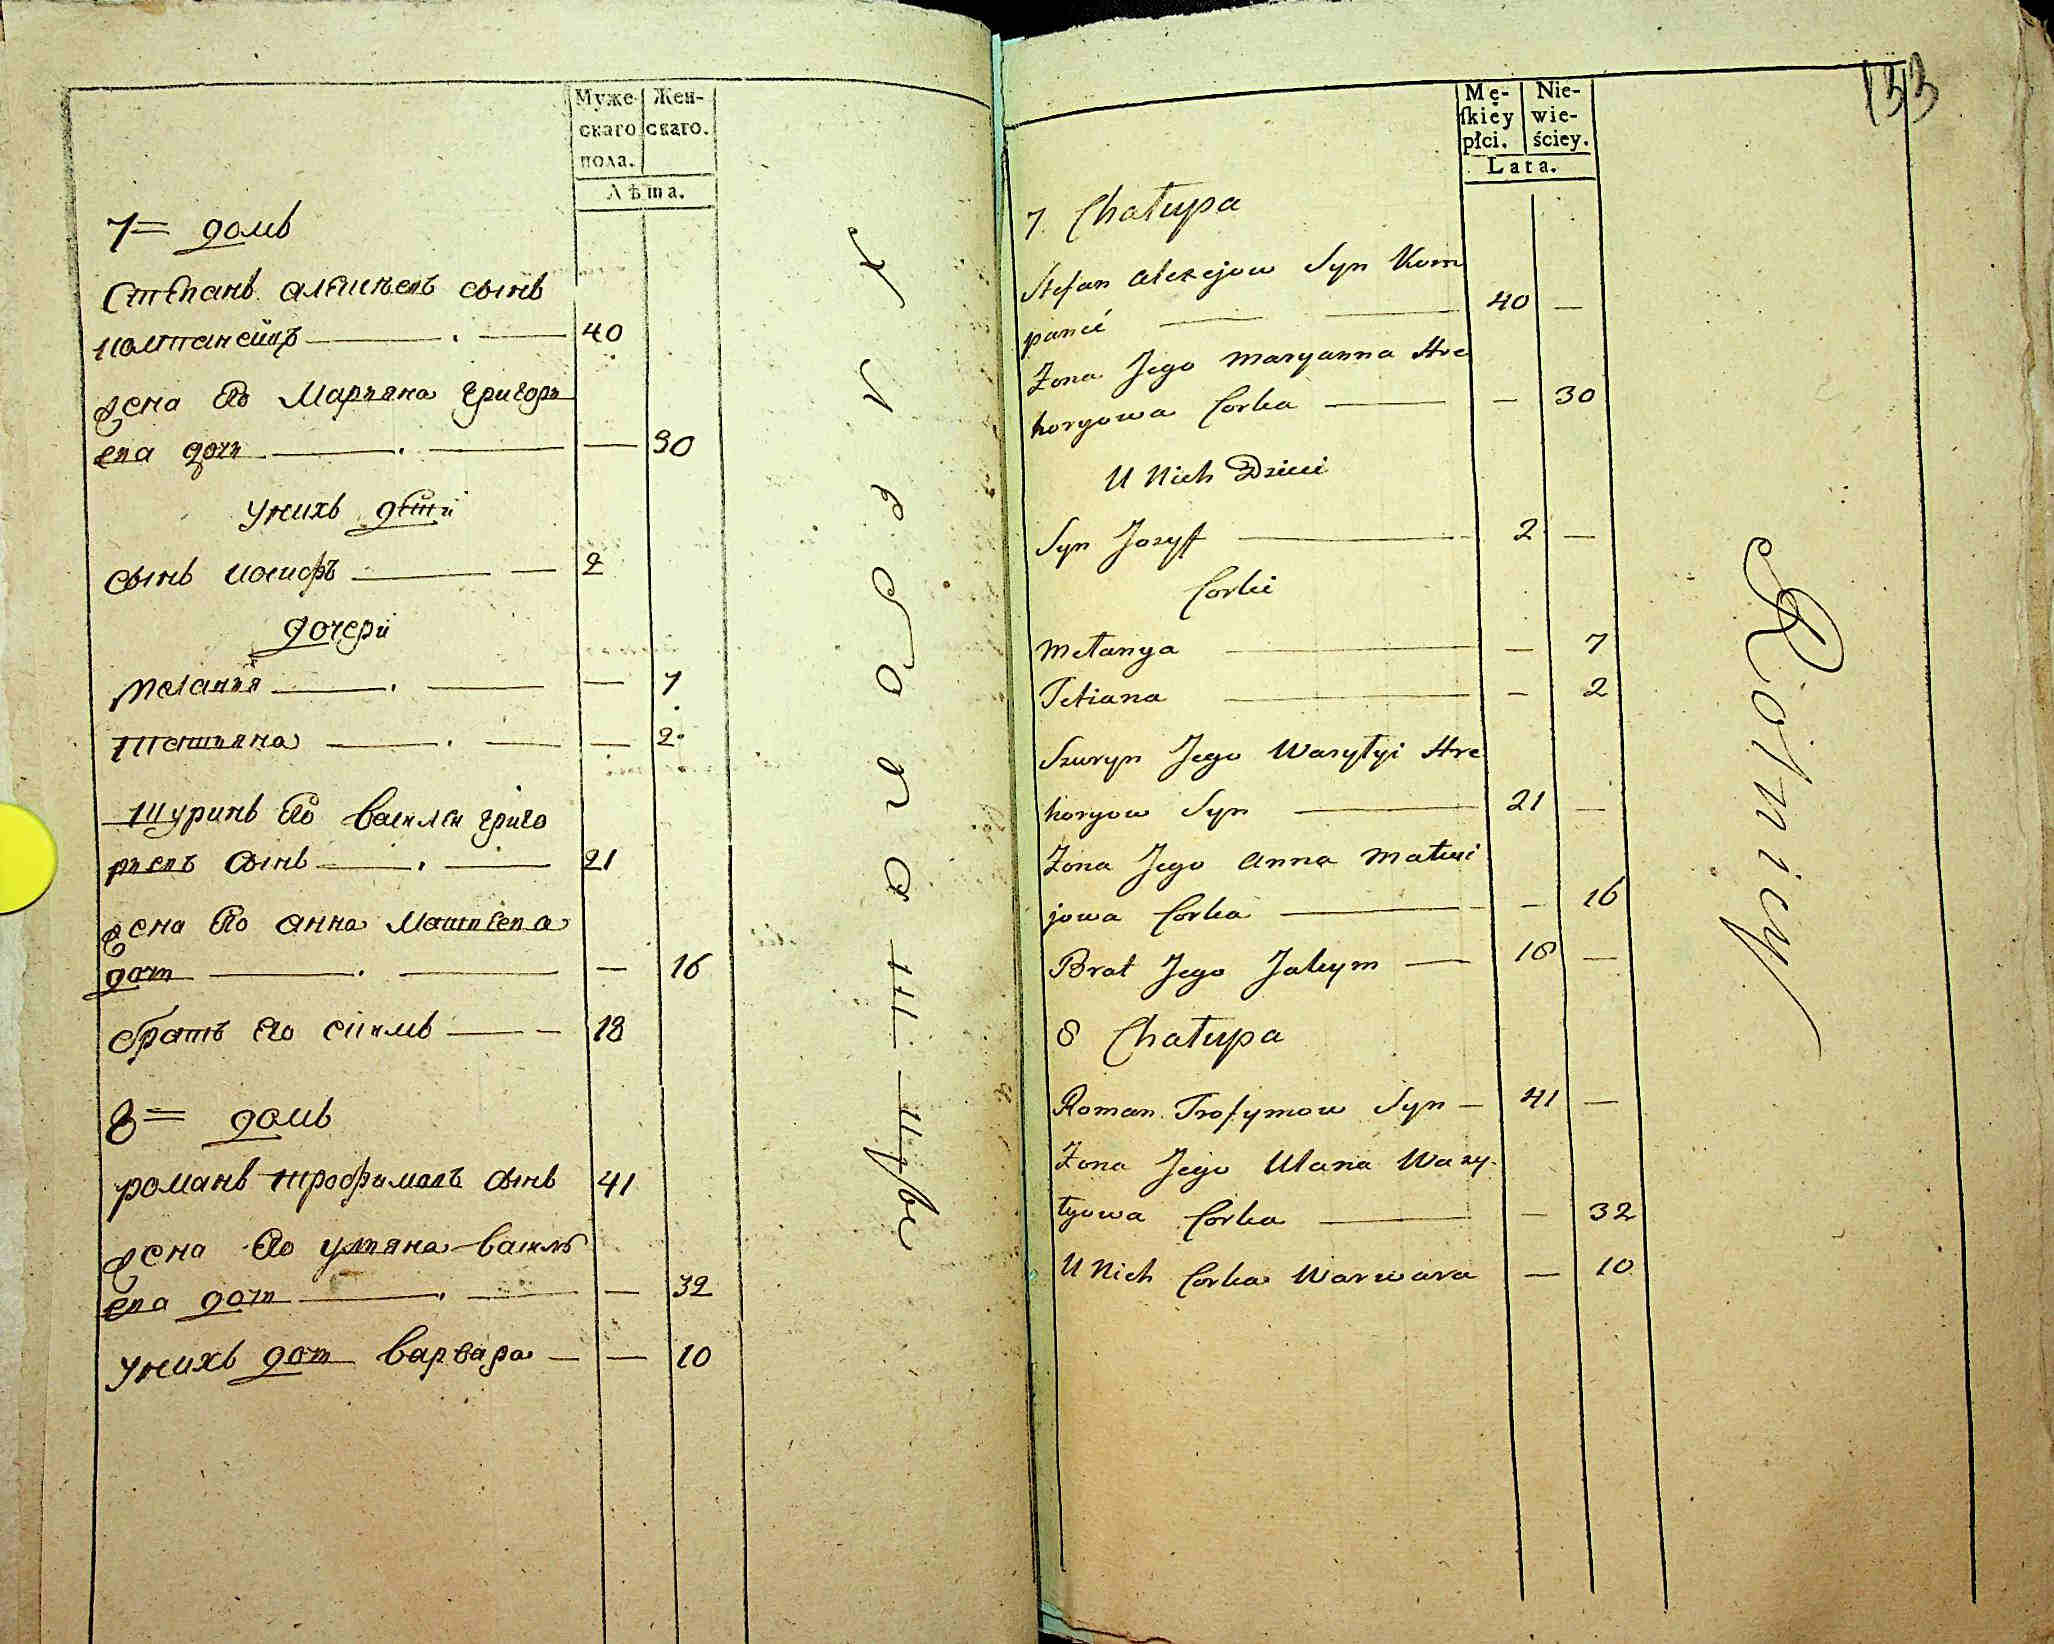 Муже-
скаго
пола.
Жен-
скаго.
Лѣта.
7 = домъ
Степанъ алексѣевъ сынъ
компанейцъ 40
жена его Марьяна григорь
ева дочь — 30
у нихъ дѣти
сынъ иосифъ 2
дочери
меланья — 7
татьяна — 2
шуринъ его василеи григо
рьевъ сынъ 21
жена его анна Матвеева
дочь — 16
братъ его екимъ 18
8 = домъ
романъ трофимовъ сынъ 41
жена его ульяна василь
ева дочь — 32
у нихъ дочь варвара — 10
133
Mę-
ſkiey
płci.
Nie-
wie-
ściey.
Lata.
7. Chałupa
Stefan Alexejow Syn Kom
paniec 40 —
Żona Jego Maryanna Hre
horyowa Corka — 30
U Nich Dzieci
Syn Jozyff 2 —
Corki
Mełanya — 7
Tetiana — 2
Szuryn Jego Wasyłyi Hre
horyow Syn 21 —
Żona Jego Anna Matwi
jowa Corka — 16
Brat Jego Jakym 18 —
8 Chałupa
Roman Trofymow Syn 41 —
Żona Jego Ulana Wasy
łyowa Corka — 32
U Nich Corka Warwara — 10
Rolnicy